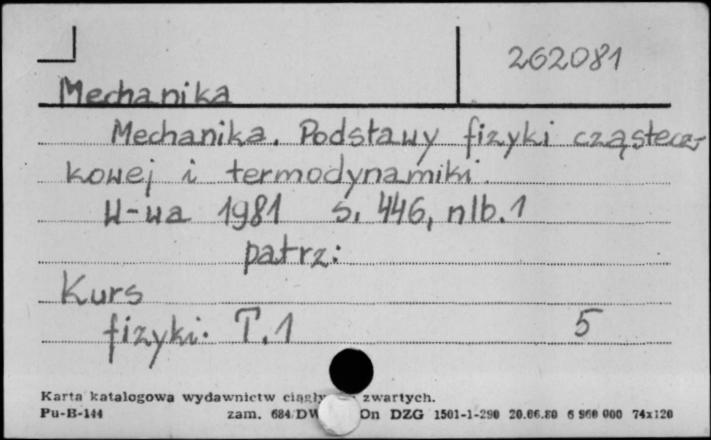 262081
Mechanika
Mechanika. Podstawy fizyki cząstecz-
kowej i termodynamiki.
W-wa 1981 s. 446, nlb. 1
patrz:
Kurs
fizyki. T. 1 5
Karta katalogowa wydawnictw zwartych.
Pu-B-144 zam. 684 Dn DZG 1501-1-290 20.06.80 6 960 000 74x120